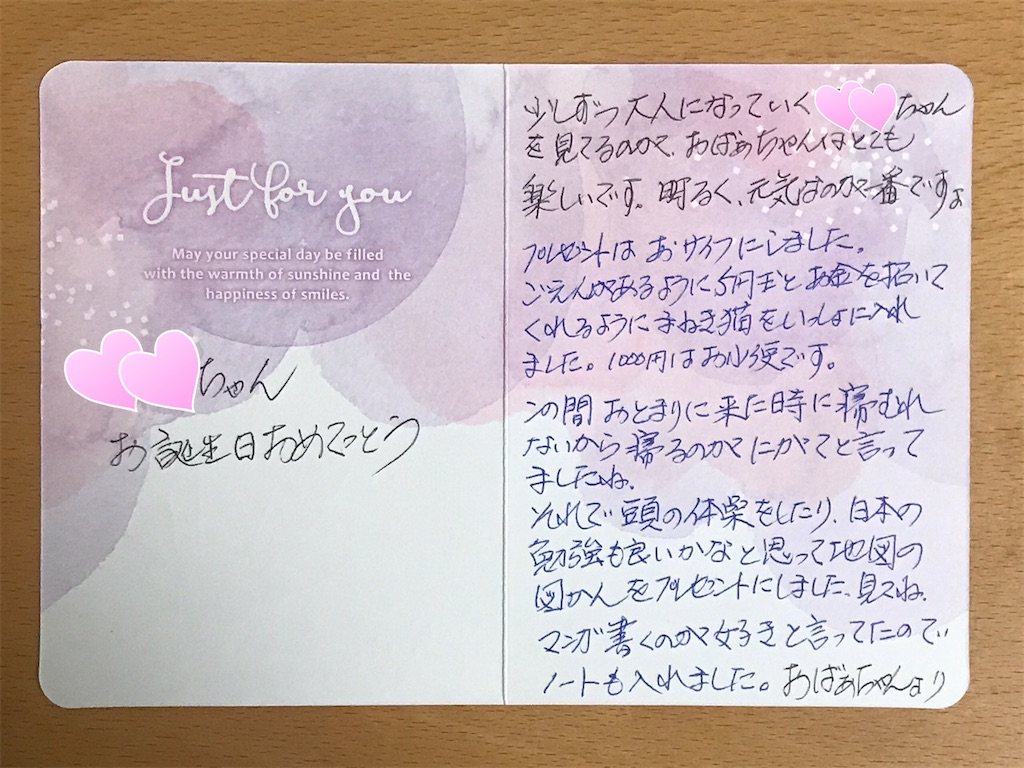 Just for you
May your special day be filled
with the warmth of sunshine and the
happiness of smiles.
ちゃん
お誕生日おめでとう
少しずつ大人になっていく ちゃん
を見てるのが、おばぁちゃんはとても
楽しいです。明るく、元気なのが一番ですよ
プレゼントはおサイフにしました。
ごえんがあるように5円玉とお金を招いて
くれるようにまねき猫をいっしょに入れ
ました。1000円はお小使です。
この間おとまりに来た時に寝むれ
ないから寝るのがにがてと言って
ましたね。
それで頭の体楽をしたり、日本の
勉強も良いかなと思って地図の
図かんをプレゼントにしました、見てね。
マンガ書くのが好きと言ってたので
ノートも入れました。おばぁちゃんより